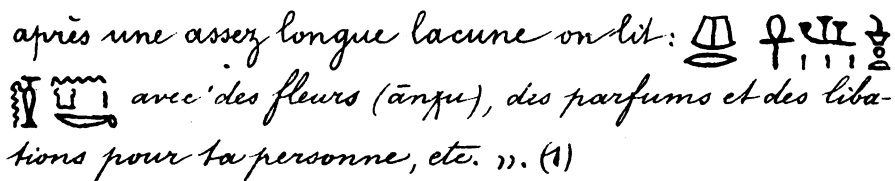 après une assez longue lacune on lit :
avec des fleurs (ānχu), des parfums et des liba-
tions pour ta personne, etc. ». (1)